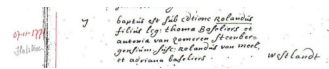 07-11-1771
7 baptis est sub cdtione Rolandus
filius leg: thoma Basoliers et
antonia van zomeren steenber-
gensium susc: Rolandus van meel,
et adriana basoliers westlandt